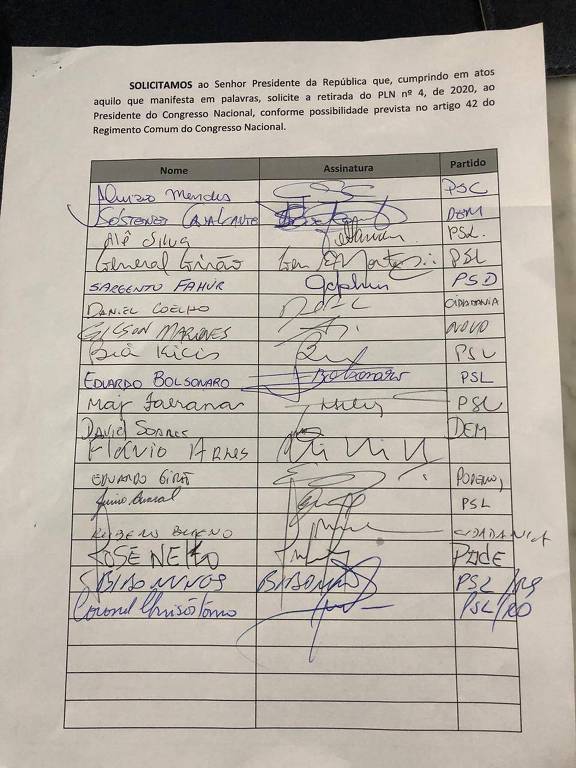 SOLICITAMOS ao Senhor Presidente da República que, cumprindo em atos
aquilo que manifesta em palavras, solicite a retirada do PLN nº 4, de 2020, ao
Presidente do Congresso Nacional, conforme possibilidade prevista no artigo 42 do
Regimento Comum do Congresso Nacional.
Nome Assinatura Partido
Aluizo Mendes PSC
SOSTENES CAVALCANTE DEM
Alê Silva PSL.
General Girão PSL
SARGENTO FAHUR PSD
DANIEL COELHO CIDADANIA
GILSON MARQUES NOVO
Bia Kicis PSL
EDUARDO BOLSONARO Bolsonaro PSL
Maj Fabiana PSL
DAVID SOARES DEM
FLÁVIO ARNS
EDUARDO GIRÃ PODEMOS
Junio Amaral PSL
RUBENS BUENO CIDADANIA
JOSE NELTO PODE
BIBO NUNES BIBO NUNES PSL/RS
Coronel Chrisóstomo PSL/RO